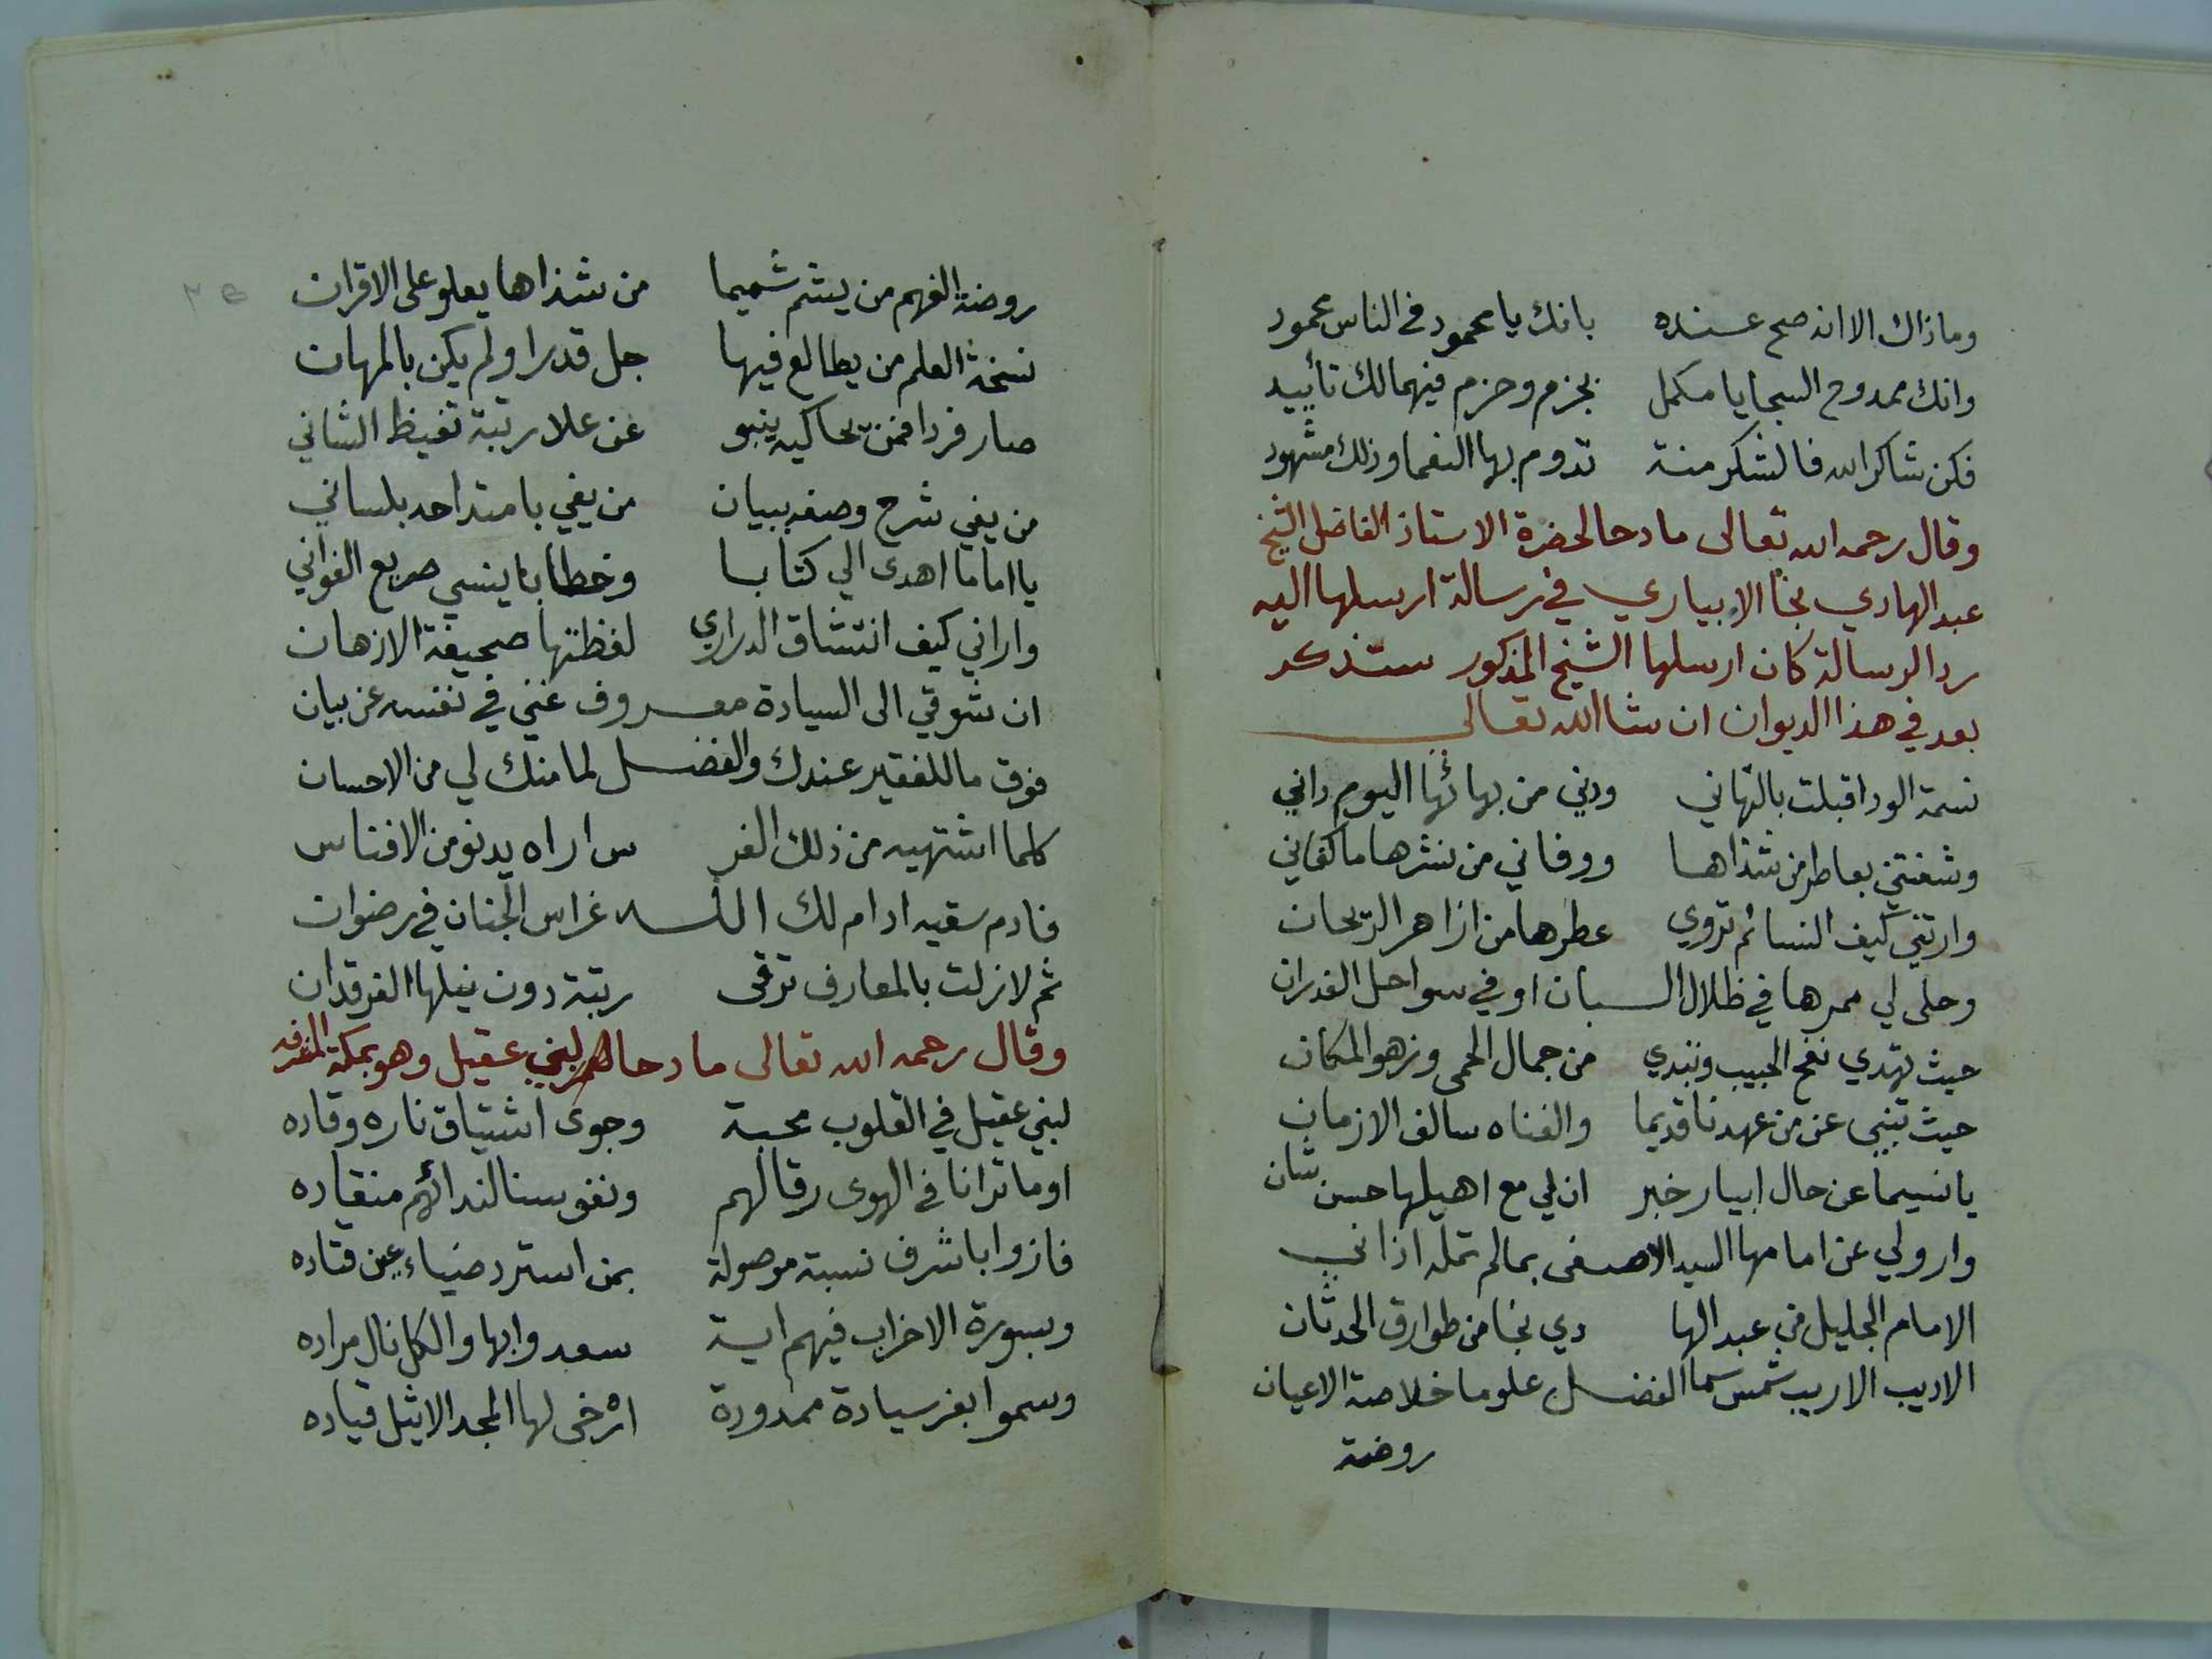 وماذاك الا انه صح عنده بانك يا محمود في الناس محمود
وانك ممدوح السجايا مكمل بجزم وحزم فيهما لك تأييد
فكن شاكرا لله فالشكر منة تدوم بها النعما وذلك مشهود
وقال رحمه الله تعالى مادحا لحضرة الاستاذ الفاضل الشيخ
عبد الهادي نجا الابياري في رسالة ارسلها اليه
ردا لرسالة كان ارسلها الشيخ المذكور ستذكر
بعد في هذا الديوان ان شا الله تعالى
نسمة الود اقبلت بالتهاني ودني من بهائها اليوم داني
وشفتني بعاطر من شذاها ووفاني من نشرها ما كفاني
وارتني كيف النسائم تروي عطرها من ازاهر الريحان
وحلى لي ممرها في ظلال البان او في سواحل الغدران
حيث تهدي نفح الحبيب وتبدي من جمال الحمى وزهو المكان
حيث تنبي عن من عهدنا قديما والفناه سالف الازمان
يا نسيما عن حال ابيار خبر ان لي مع اهيلها حسن شان
وارولي عن امامها السيد الاصفى بما لم تمله اذاني
الامام الجليل من عبد الها دي نجا من طوارق الحدثان
الاديب الاريب شمس سما الفضل علوما خلاصة الاعيان
روضة
٣٥
روضة الفهم من يشم شميما من شذاها يعلو على الاقران
نسخة العلم من يطالع فيها جل قدرا ولم يكن بالمهان
صار فردا فمن يحاكيه ينبو عن علا رتبة تغيظ الشاني
من يفي شرح وصفه ببيان من يفي بامتداحه بلساني
يا اماما اهدى الي كتابا وخطابا ينسي صريع الغواني
واراني كيف انتشاق الدراري لفظتها صحيفة الاذهان
ان شوقي الى السيادة معروف غني في نفسه عن بيان
فوق ما للفقير عندك والفضل لما منك لي من الاحسان
كلما اشتهيه من ذلك الغر س اراه يدنو من الافناس
فادم سقيه ادام لك الله غراس الجنان في رضوان
ثم لازلت بالمعارف ترقى رتبة دون نيلها الفرقدان
وقال رحمه الله تعالى مادحا لبني عقيل وهو بمكة المشرفه
لبني عقيل في القلوب محبة وجوى اشتياق ناره وقاده
اوما ترانا في الهوى رقا لهم ونفوسنا لندائهم منقاده
فازوا باشرف نسبة موصولة بمن استرد ضياء عين قتاده
وبسورة الاحزاب فيهم اية سعدوا بها والكل نال مراده
وسموا بفر سيادة ممدودة ارخى لها المجد الاثيل قياده